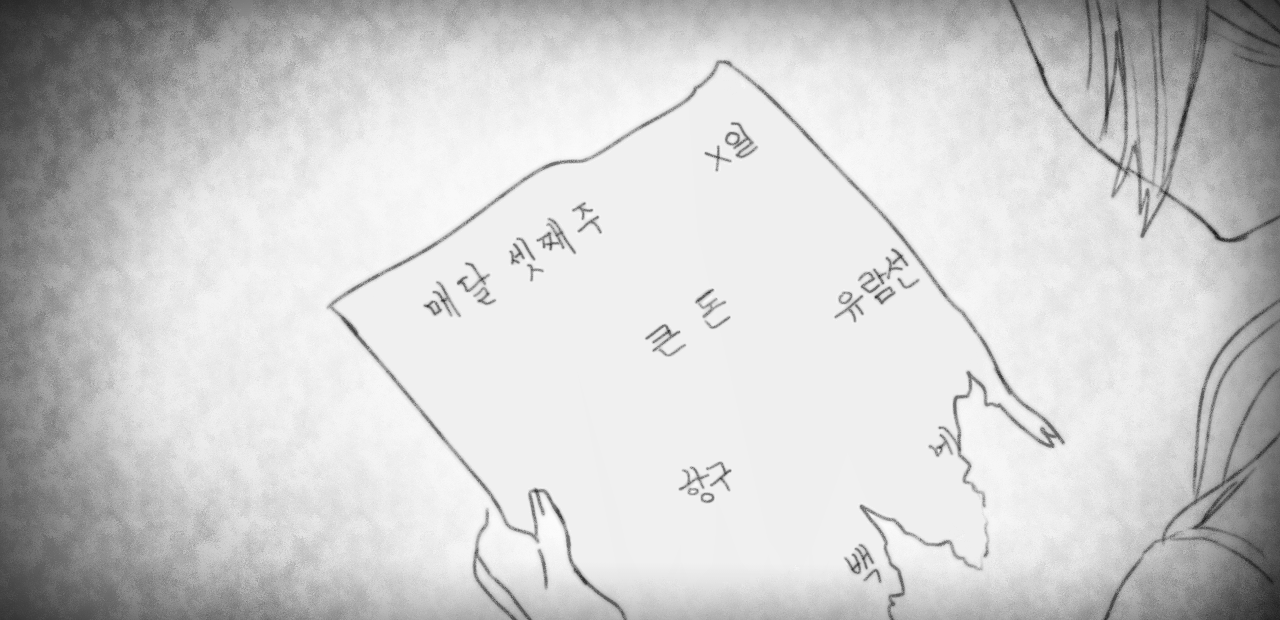 X일
매달 셋째 주
큰 돈
유람선
에
항구
백